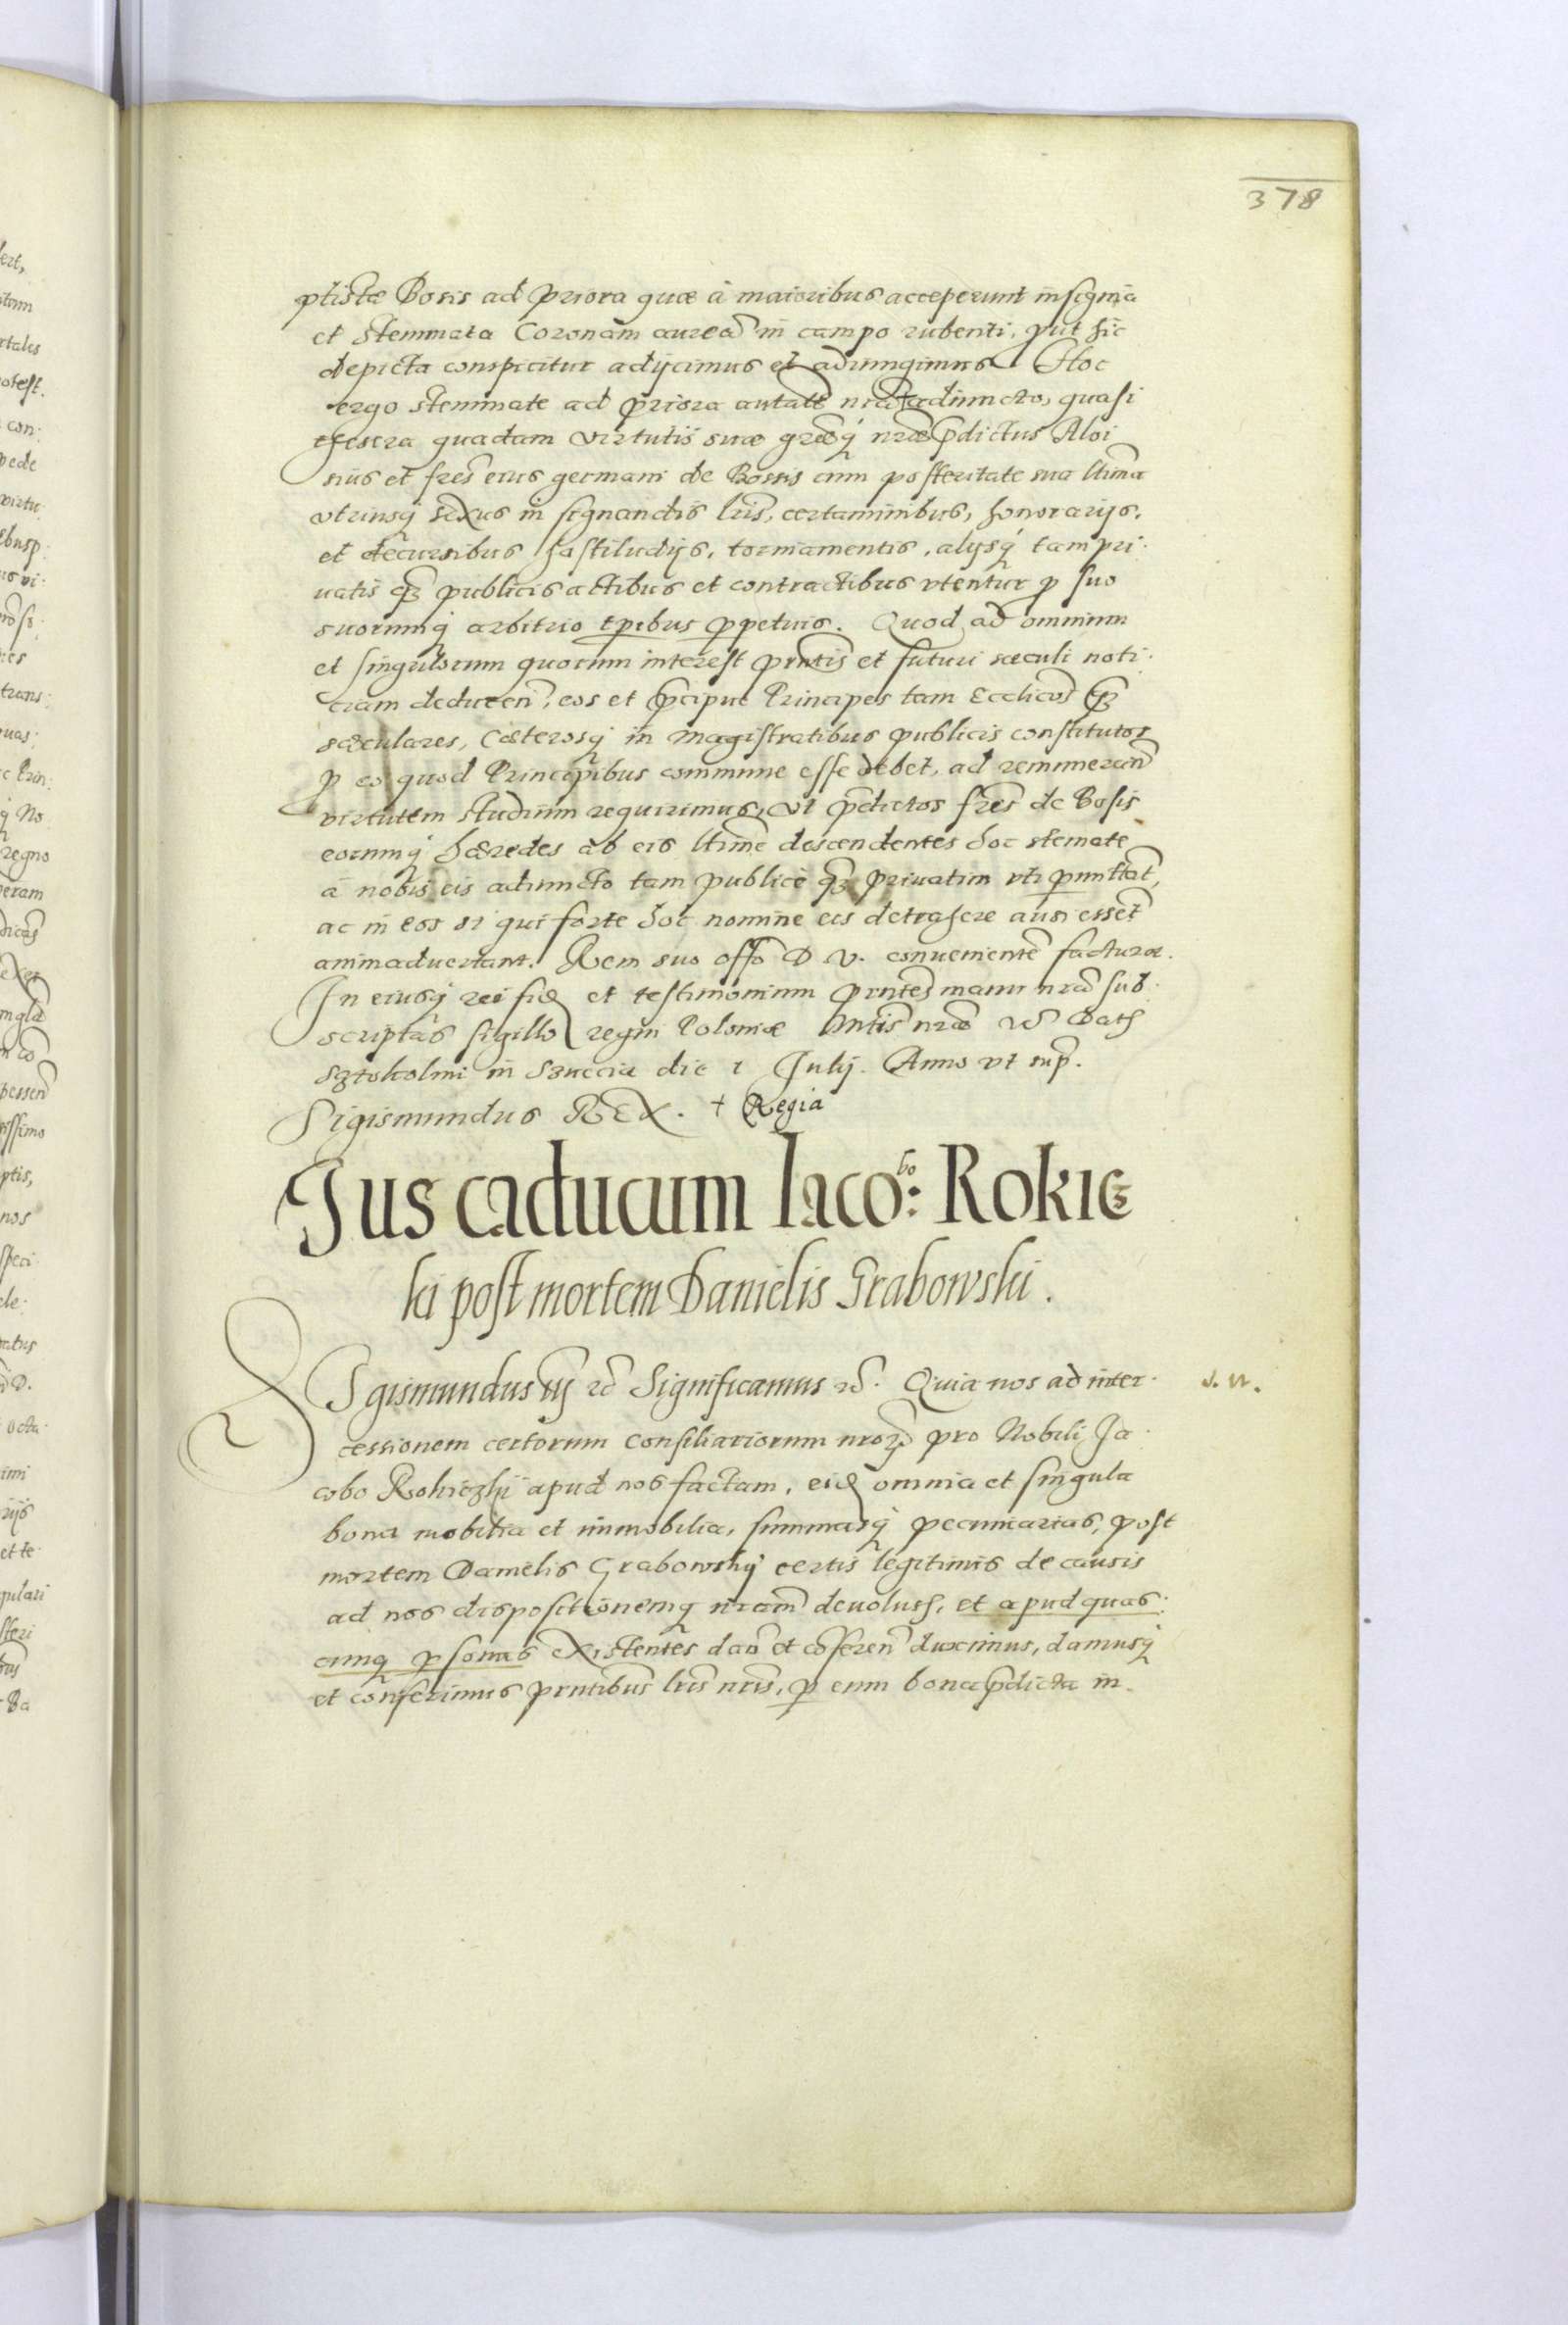 378
ptistæ Bosis ad priora quæ à maioribus acceperunt insignia
et stemmata Coronam aureã in campo rubenti, put hic
depicta conspicitur adijcimus et adiungimus Hoc
ergo stemmate ad priora autate nrã adiuncto, quasi
thesera quadam virtutis suæ græq nræ pdictus Aloi
sius et fres eius germani de Bossis cum posteritate sua ltima
vtriusq sexus in signandis lris, certaminibus, honorarijs,
et decursibus hastiludijs, torniamentis, alijsq tam pri:
uatis qz publicis actibus et contractibus vtentur p suo
suorumq arbitrio tpibus ppetuis. Quod ad omnium
et singulorum quorum interest pntis et futuri sæculi noti:
ciam deducen, eos et pcipue Principes tam Ecclicos qz
sæculares, Cæterosq in magistratibus publicis constitutos
p eo quod Principibus commune esse debet, ad remuneran
virtutem studium requirimus, vt pdictos fres de Bosis
eorumq hæredes ab eis ltime descendentes hoc stemate
à nobis eis adiuncto tam publicè qz priuatim vti pmittat,
ac in eos si qui forte hoc nomine eis detrahere ausi essent
animaduertant. Rem suo offo D V. conuenientẽ facturæ.
In eiusq rei fidẽ et testimonium pntes manu nrã sub:
scriptas sigillo regni Poloniæ
Sztokolmi in Szuecia die 1 Julij. Anno vt sup.
Sigismundus REX. + Regia
Jus caducum Iaco:bo Rokicz
ki post mortem Danielis Grabowski.
SIgismundus iij rc Significamus rc. Quia nos ad inter:
s. n.
cessionem certorum consiliariorum nroz pro Nobili Ja:
cobo Rokiczki apud nos factam, eidẽ omnia et singula
bona mobilia et immobilia, summasq pecuniarias, post
mortem Danielis Grabowskij certis legitimis de causis
ad nos dispositionemq nram deuolut, et apud quas:
cunq psonas existentes dan et cõferen duximus, damusq
et conferimus pntibus lris nris, p eum bona pdicta in